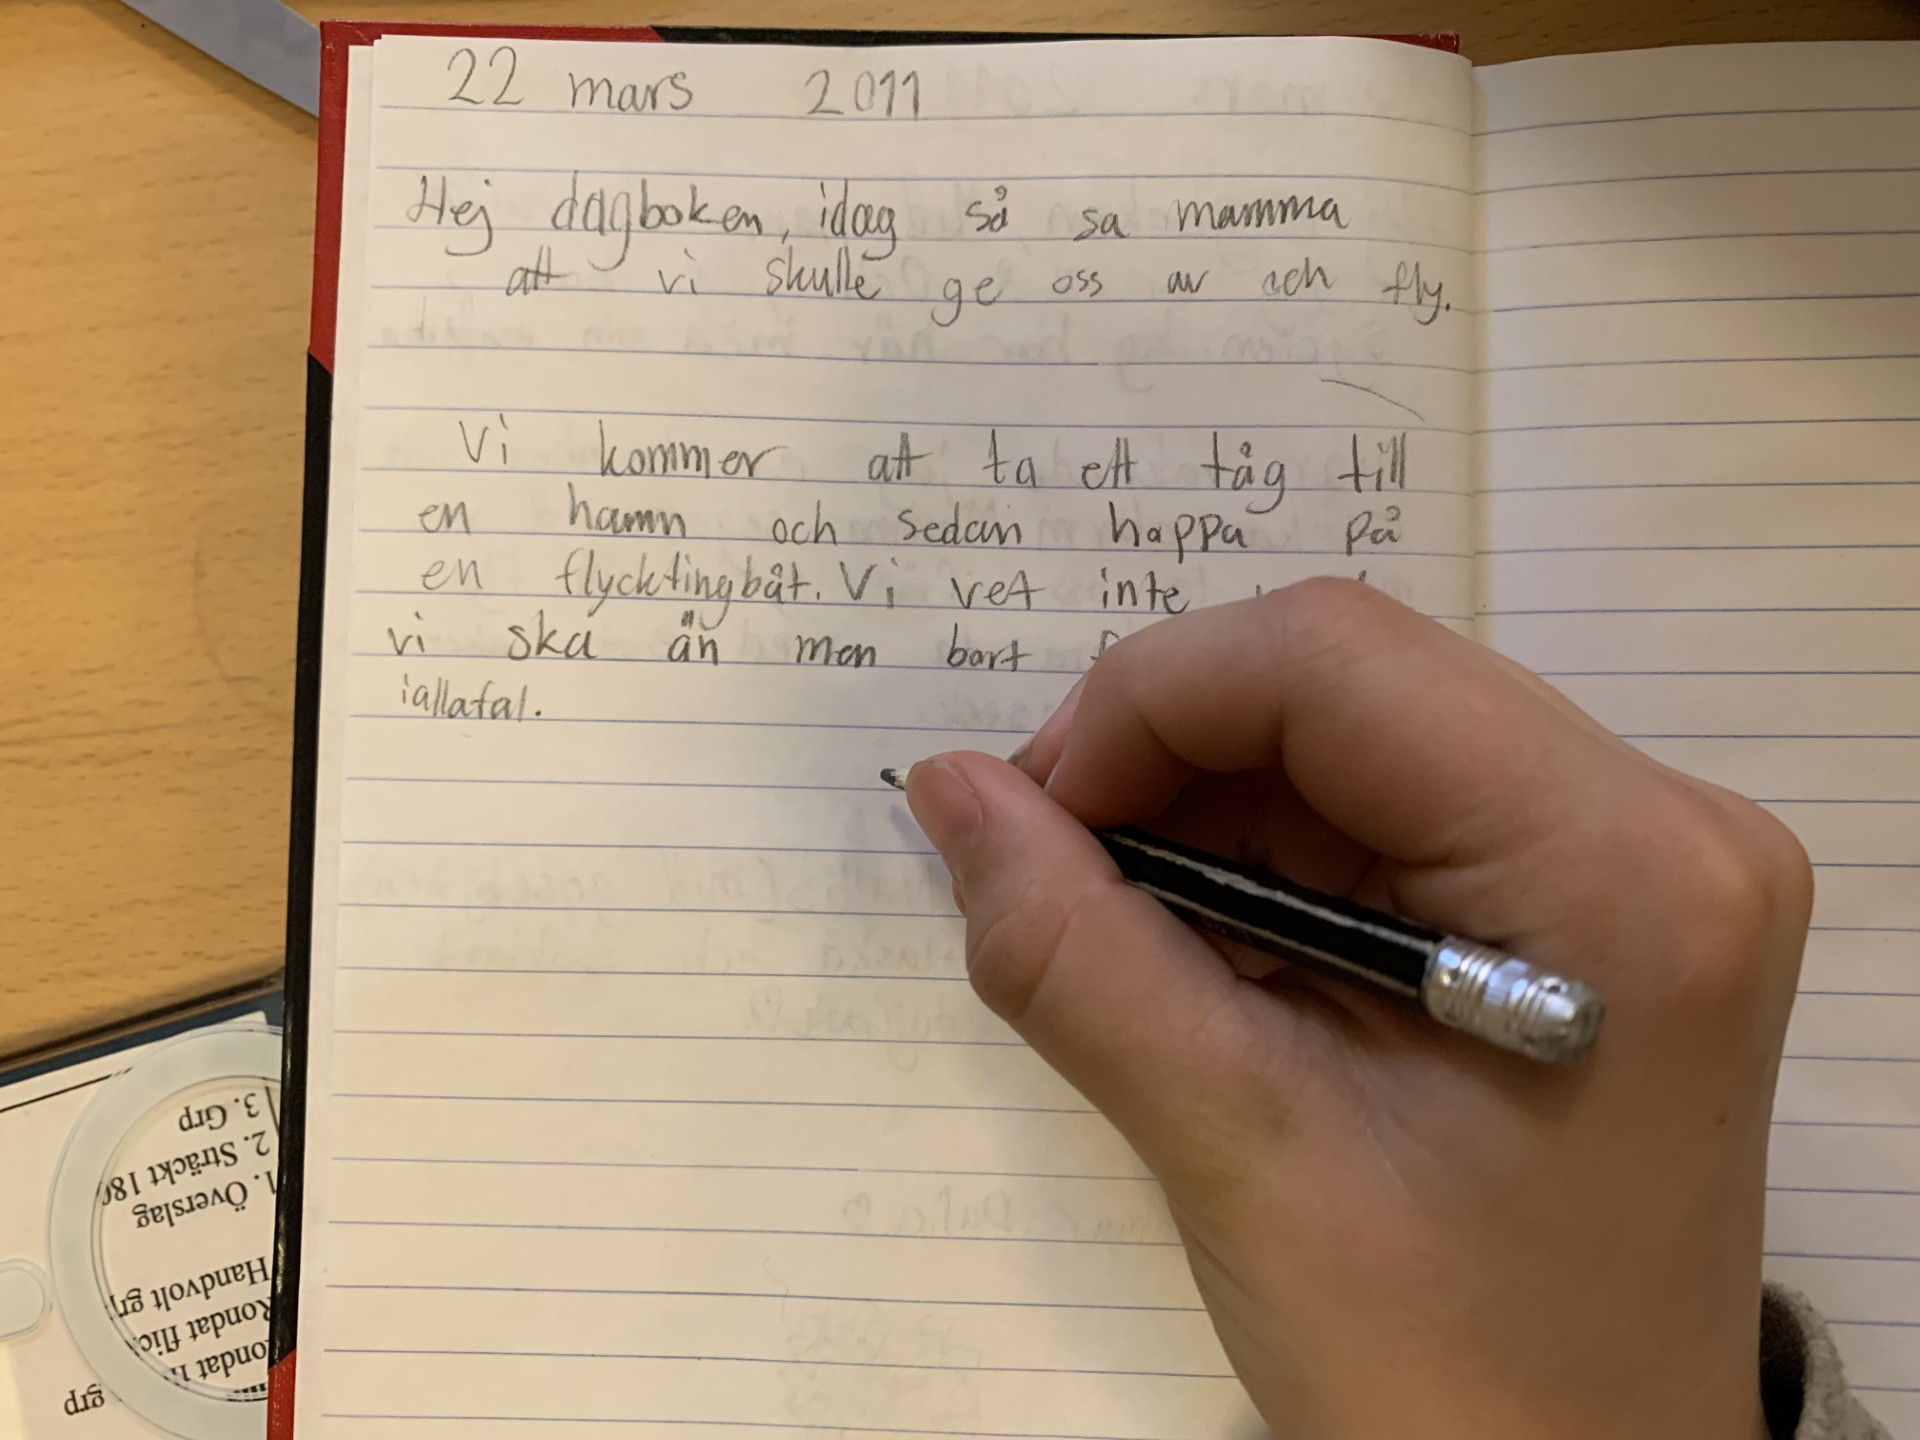 22 mars 2011
Hej dagboken, idag så sa mamma
att vi skulle ge oss av och fly.
Vi kommer att ta ett tåg till
en hamn och sedan hoppa på
en flycktingbåt. Vi vet inte
vi ska än men bort
iallafal.
3. Grp
2. Sträckt
1. Överslag
Handvolt
Rondat
grp